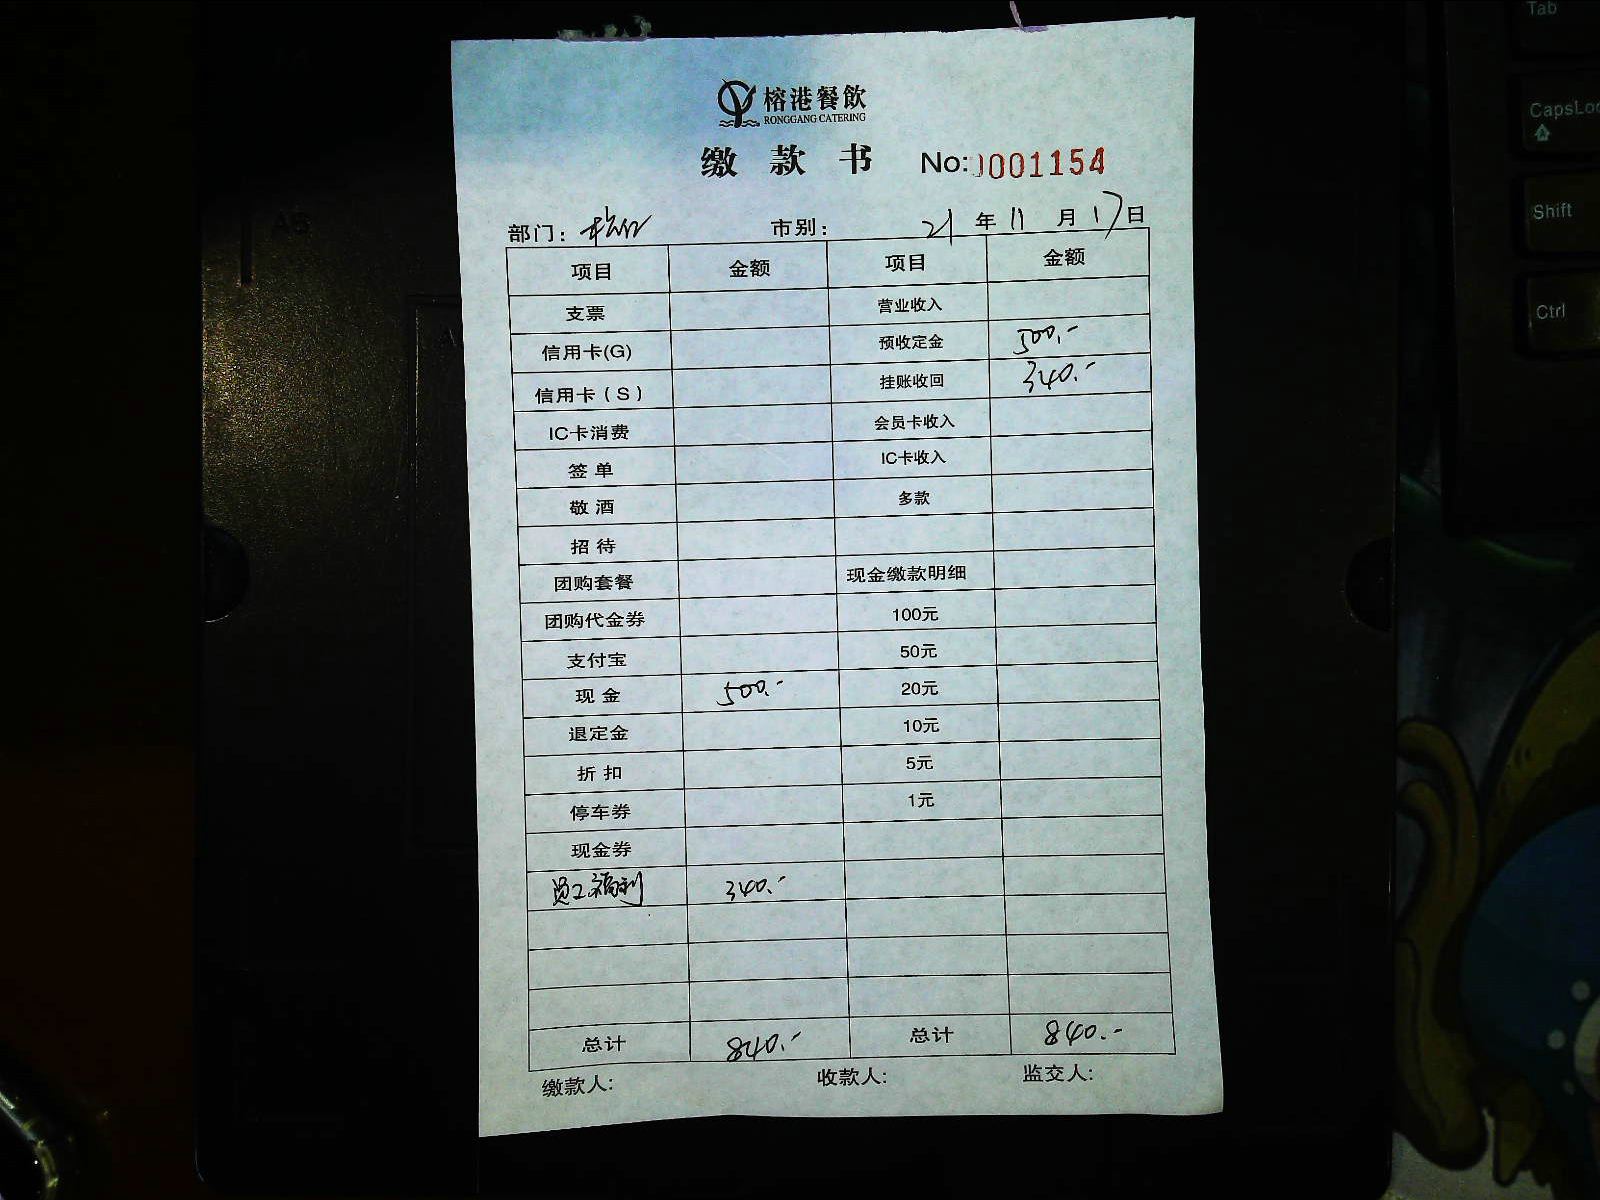 榕港餐飲
RONGGANG CATERING
缴 款 书 No:0001154
部门: 市别: 21 年 11 月 17 日
项目 金额 项目 金额
支票 营业收入
信用卡(G) 预收定金 500.-
信用卡(S) 挂账收回 340.-
IC卡消费 会员卡收入
签 单 IC卡收入
敬 酒 多款
招 待
团购套餐 现金缴款明细
团购代金券 100元
支付宝 50元
现 金 500.- 20元
退定金 10元
折 扣 5元
停车券 1元
现金券
员工福利 340.-
总计 840.- 总计 840.-
缴款人: 收款人: 监交人:
Tab
CapsLoc
Shift
Ctrl